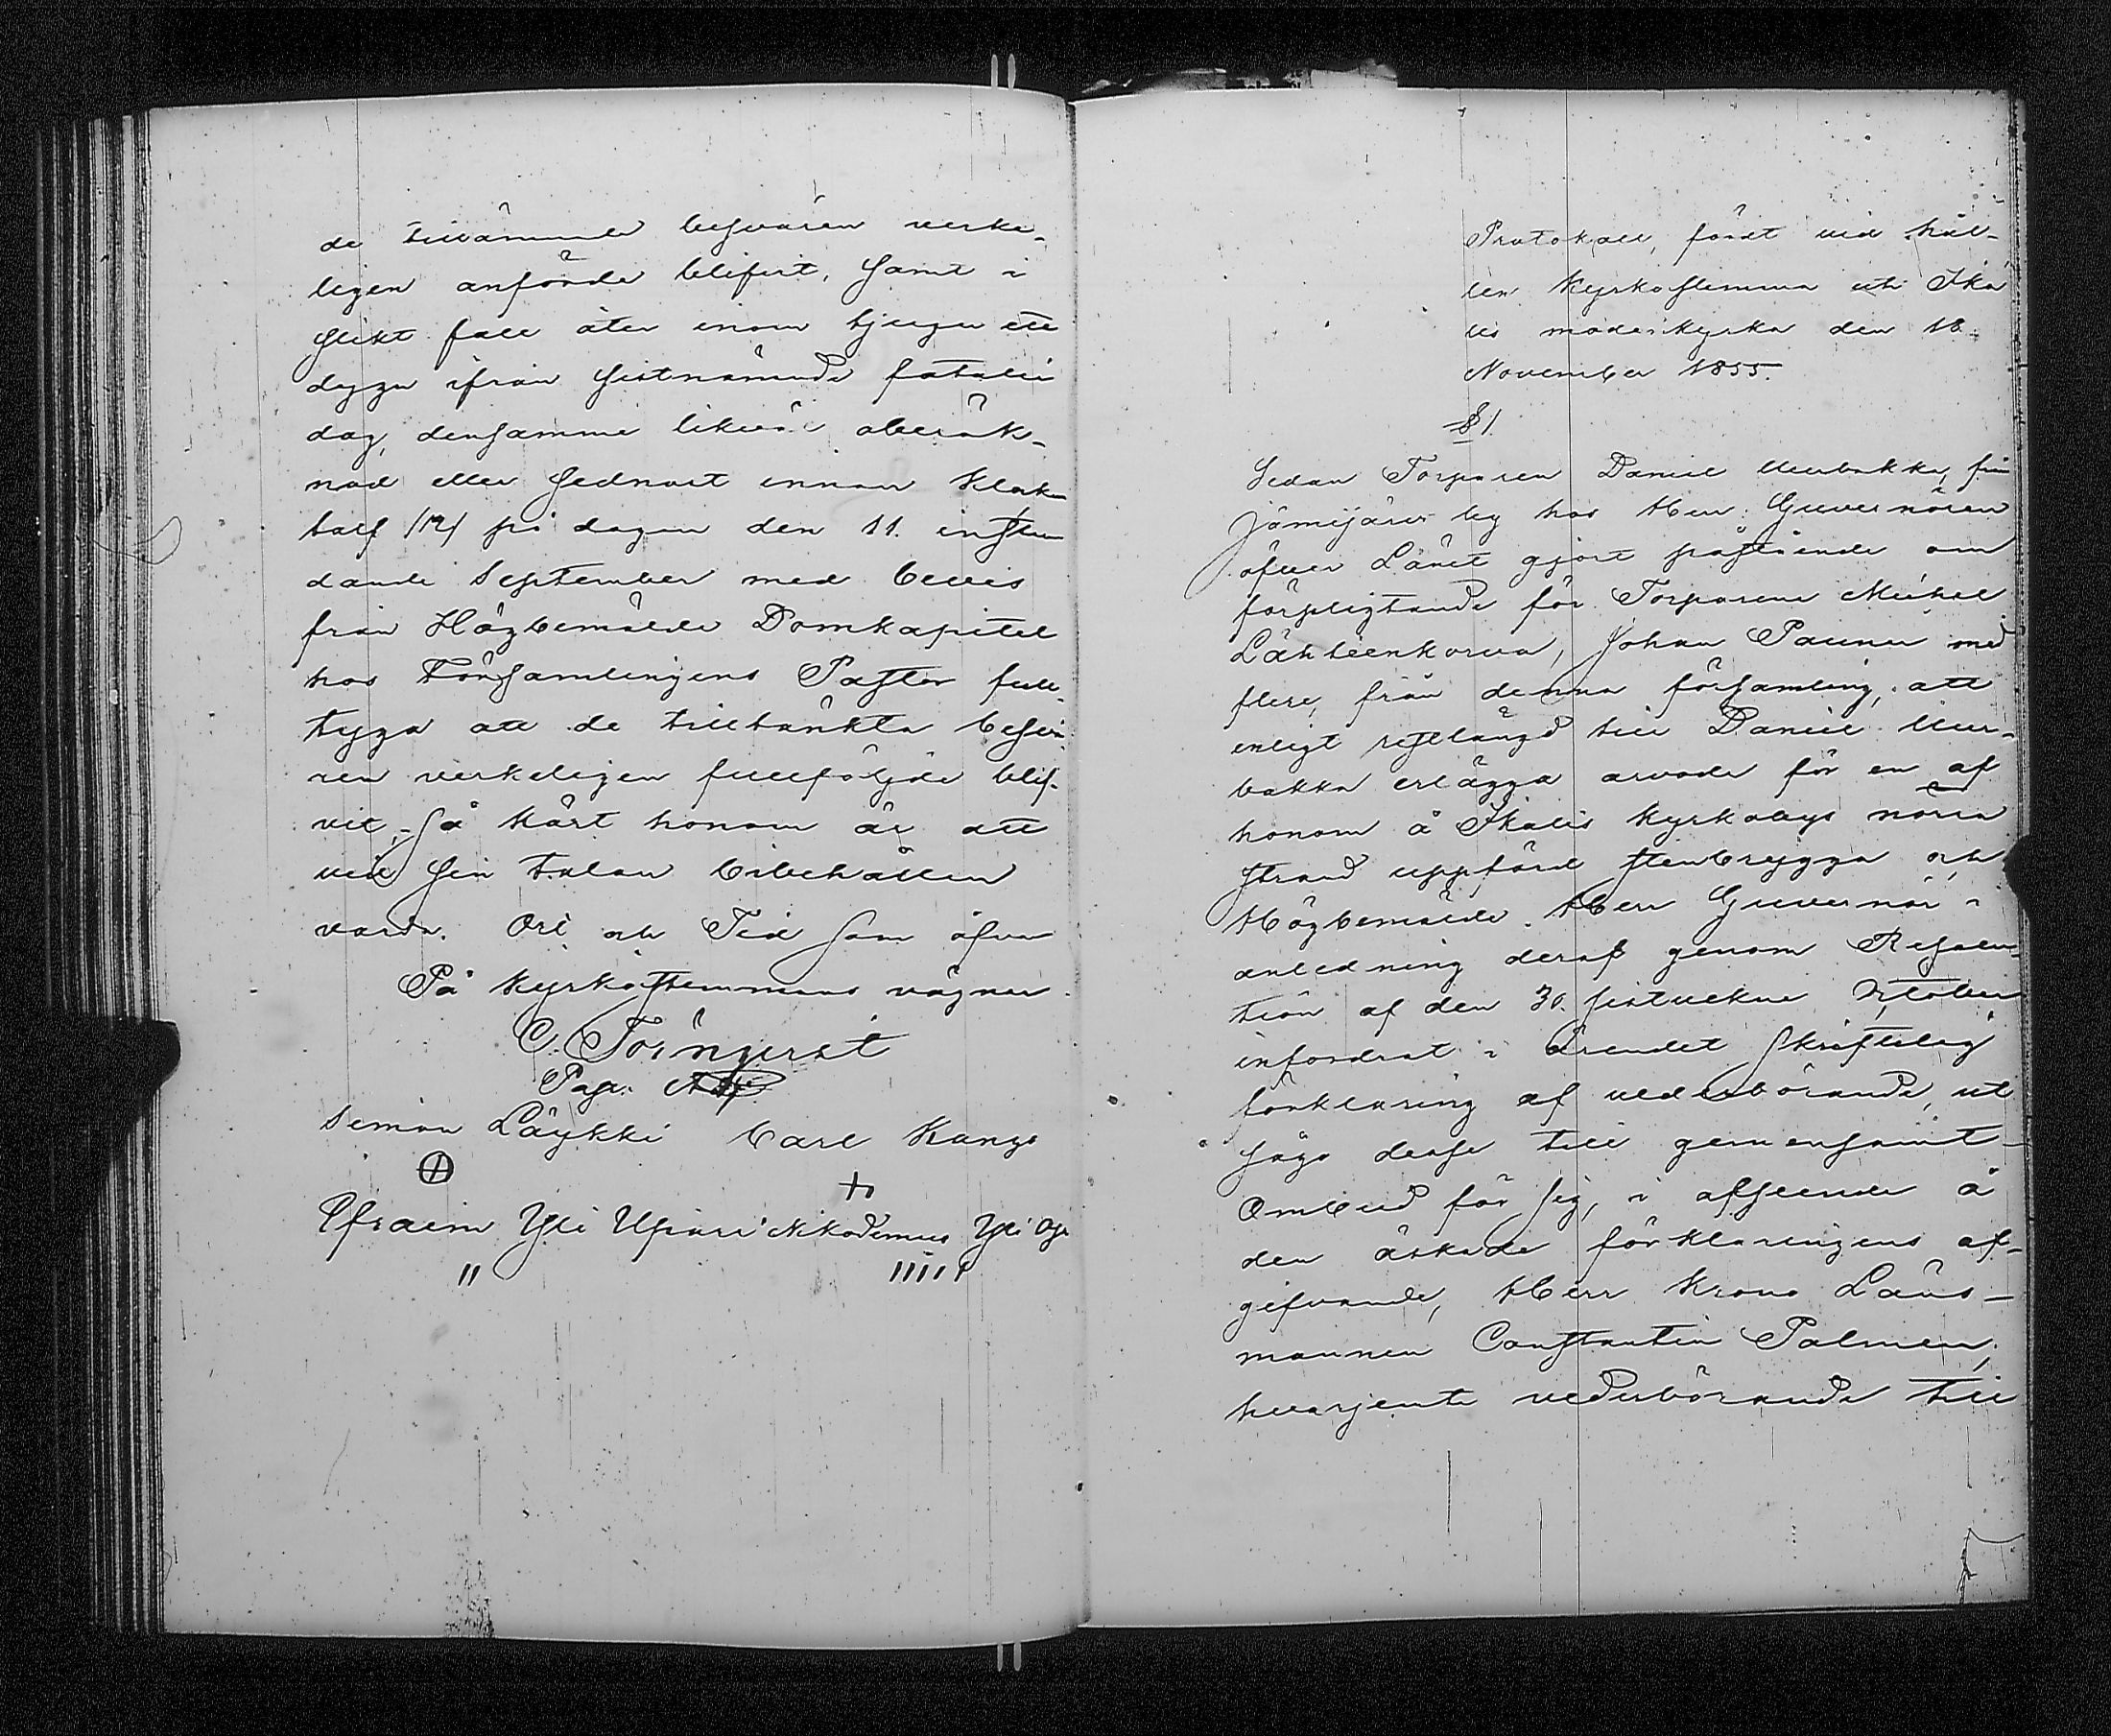 de tillämnade besvären verke-
ligen anförde blifvit, samt i
slikt fall åter inom tjugu ett
dygn ifrån sistnämnde fatalie
dag, densamme likväl oberäk-
nad eller sednast innan klockan
tolf /12/ på dagen den 11. instun
dande September med bevis
från Högbemälde Domkapitel
hos Församlingens Pastor full-
tyga att de tilltänkta besvä-
ren verkeligen fullföljde blif-
vit, så kärt honom är att
vid sin talan bibehållen
varda. Ort och Tid som ofvan
På kyrkostemmans vägnar
C. Törnqvist
Past. Adj.
Simon Läykki Carl Kangs
Efraim Yli Upari Nikodemus Yli
Protokoll, fördt vid hål-
len kyrkostemma uti Ika
lis moderkyrka den 18
November 1855.
§ 1.
Sedan Torparen Daniel Uurbakka, från
Jämijärvi by hos Herr Guvernören
öfver Länet gjort påstående om
förpligtande för Torparene Mickel
Lähteenkorva, Johan Paunu med
flere, från denna församling, att
enligt restlängd till Daniel Uur-
bakka erlägga arvode för en af
honom å Ikalis kyrkovägs norra
strand uppförd stenbrygga och
Högbemälde Herr Guvernör i
anledning deraf genom Resolu-
tion af den 30. sistvekne October
infordrat i ärendet skriftelig
förklaring af vederbörande, ut
sågo desse till gemensamt
Ombud för sig, i afseende å
den äskade förklaringens af-
gifvande, Herr Krono Läns-
mannen Constantin Palmen,
hvarjemte vederbörande till